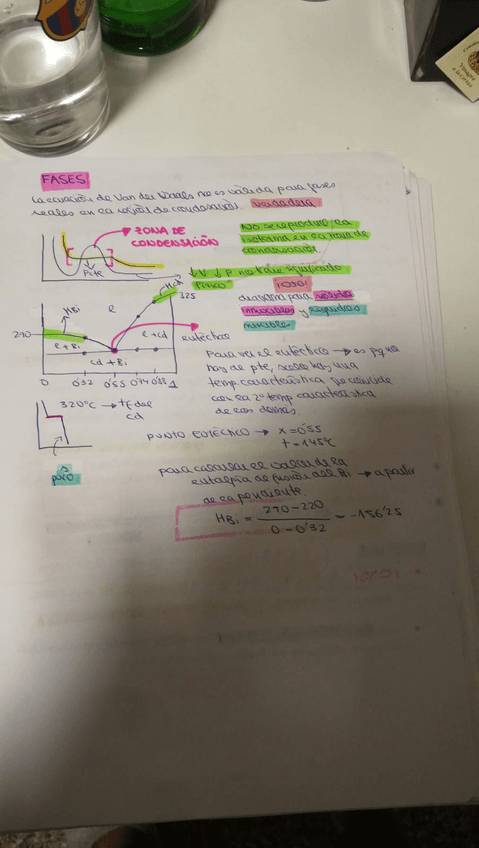 FASES
La ecuación de Van der Waals no es válida para gases
reales en la región de condensación. Verdadera
ZONA DE
CONDENSACIÓN
Pcte
No se reproduce la
isoterma en la zona de
condensación
↓V ↓P no tiene significado
físico
HBi
l
HCd
325
270
l+Bi
l+Cd
Cd + Bi
0 0'32 0'55 0'74 0'88 1
eutéctico
diagrama para sólidos
inmiscibles y líquidos
miscibles
Para ver el eutéctico → es pq no
hay 2ª pte, solo hay una
temp. característica que coincide
con la 2ª temp característica
de las demás
320°C → tF del
Cd
S
puro
PUNTO EUTÉCTICO → x = 0'55
t = 145°C
para calcular el valor de la
entalpía de fusión del Bi → a partir
de la pendiente.
HBi = 270 - 220 / 0 - 0'32 = -156'25